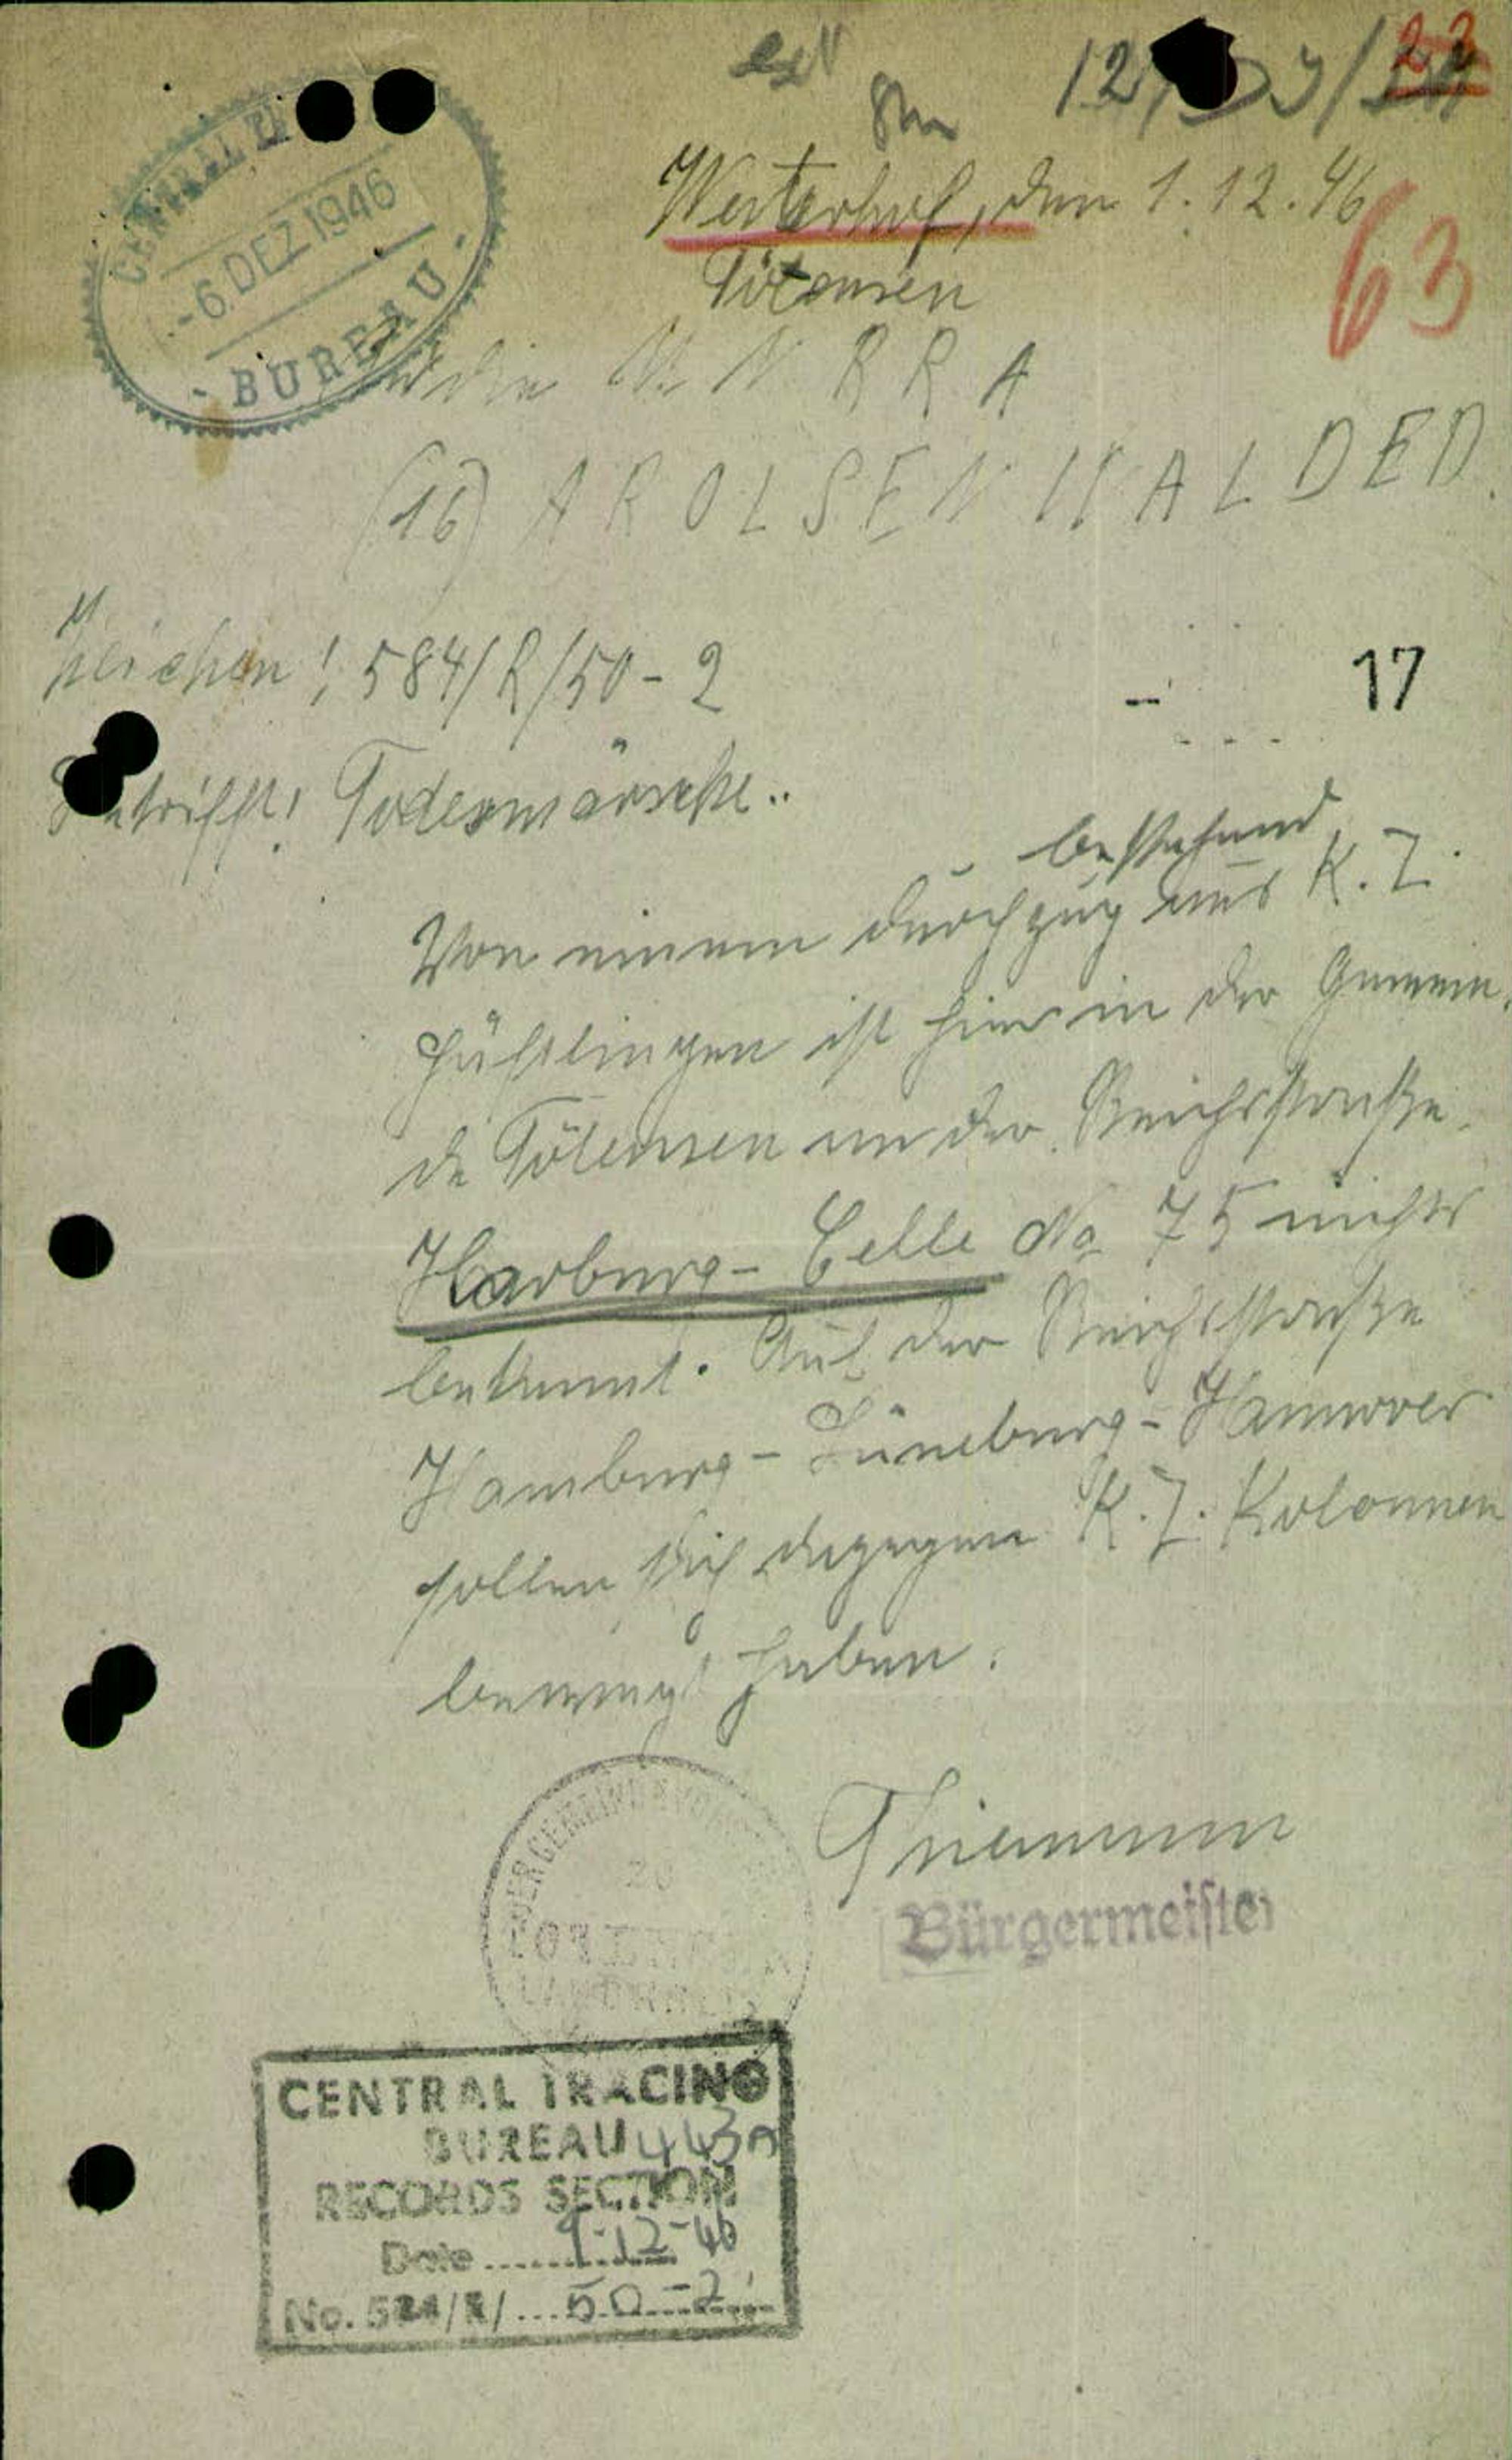 63
Westerhof, den 1.12.46
Tötensen
CENTRAL
- 6. DEZ 1946
- BUREAU -
An die U N R R A
(16) A R O L S E N W A L D E D.
Zeichen! 584/R/50-2
17
Betrifft! Todesmärsche..
bestehend
Von einem Durchzug aus K. Z.
Häftlingen ist hier in der Gemein-
de Tötensen an der Reichsstraße
Harburg - Celle No 75 nichts
bekannt. Auf der Reichsstraße
Hamburg - Lüneburg - Hannover
sollen sich dagegen K. Z. Kolonnen
bewegt haben.
Bürgermeister
DER GEMEINDEVOR
CENTRAL TRACING
BUREAU 443A
RECORDS SECTION
Date 9-12-46
No. 584/R/ 50-2